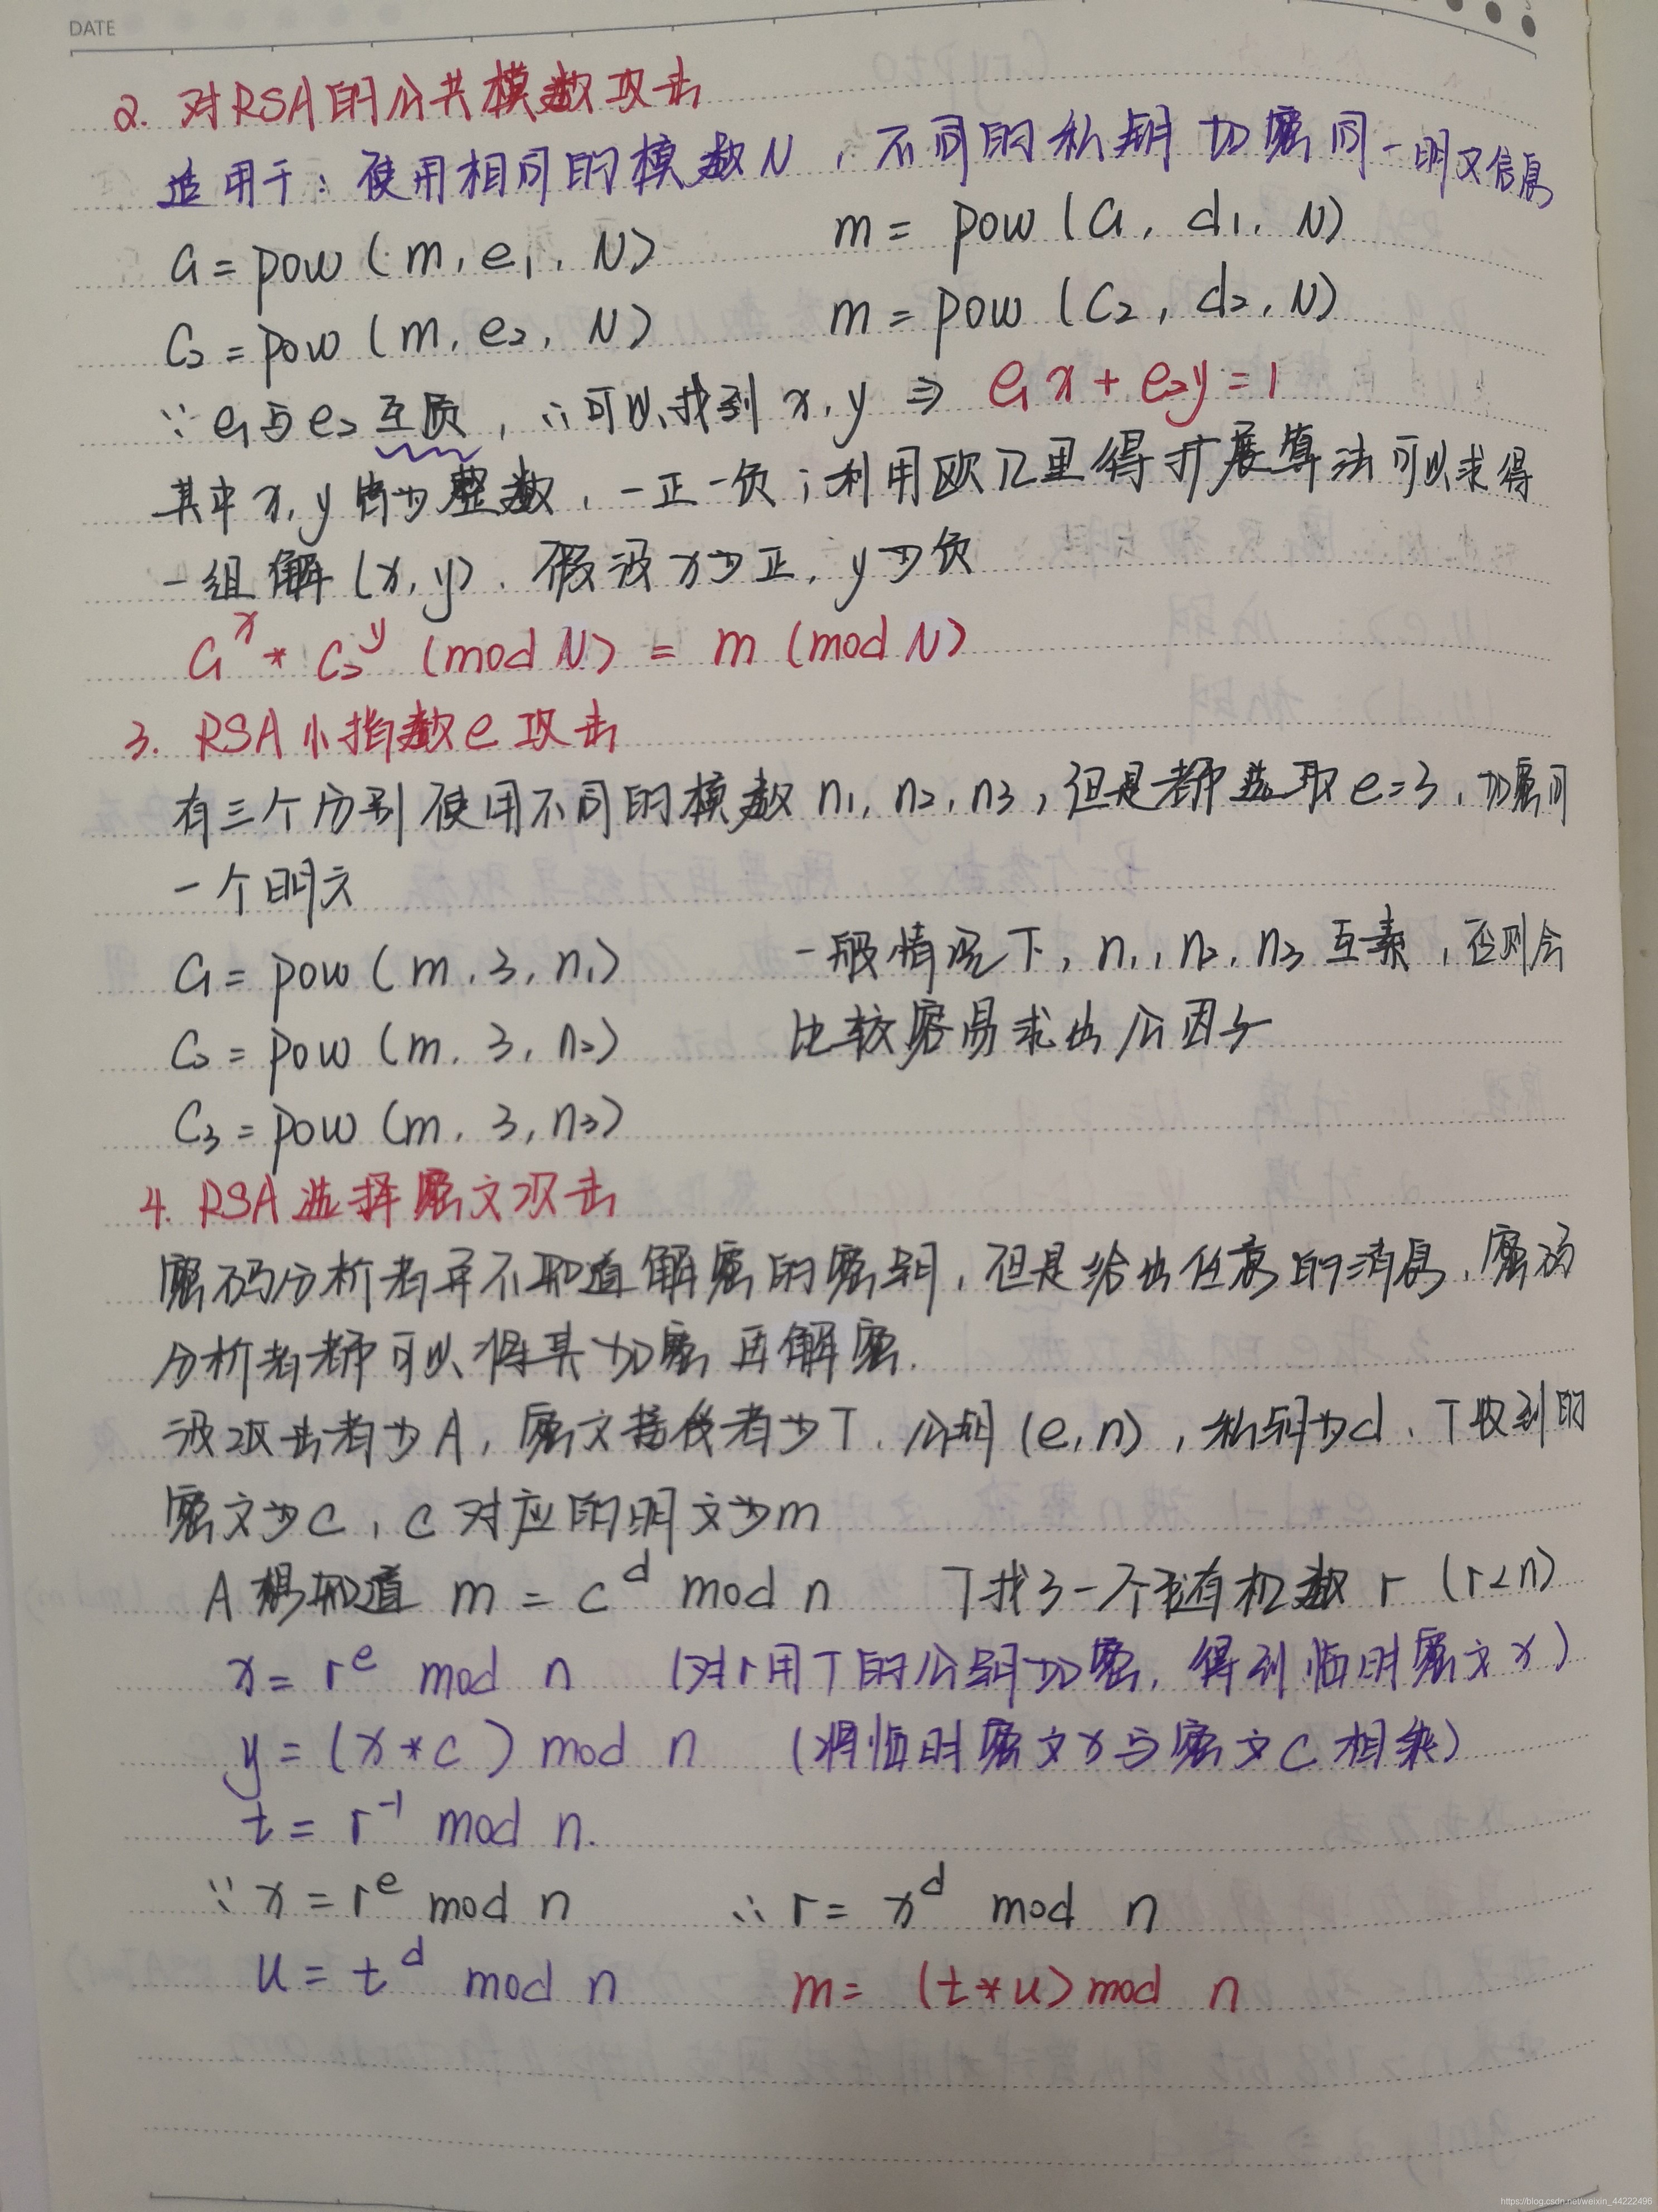 DATE
2. 对RSA的公共模数攻击
适用于：使用相同的模数N，不同的私钥加密同一明文信息
C1 = pow (m, e1, N)    m = pow (C1, d1, N)
C2 = pow (m, e2, N)    m = pow (C2, d2, N)
∵ e1与e2互质，∴可以找到 x, y ⇒ e1x + e2y = 1
其中 x, y 皆为整数，一正一负；利用欧几里得扩展算法可以求得
一组解 (x, y)，假设x为正，y为负
C1^x * C2^y (mod N) = m (mod N)
3. RSA小指数e攻击
有三个分别使用不同的模数 n1, n2, n3，但是都选取e=3，加密同
一个明文
C1 = pow (m, 3, n1)    一般情况下，n1, n2, n3 互素，否则会
C2 = pow (m, 3, n2)    比较容易求出公因子
C3 = pow (m, 3, n3)
4. RSA选择密文攻击
密码分析者并不知道解密的密钥，但是给出任意的消息，密码
分析者都可以将其加密再解密.
设攻击者为A，密文接收者为T，公钥(e, n)，私钥为d，T收到的
密文为c，c对应的明文为m
A想知道 m = c^d mod n    T找了一个随机数 r (r<n)
x = r^e mod n    (对r用T的公钥加密，得到临时密文x)
y = (x*c) mod n    (将临时密文x与密文c相乘)
t = r^-1 mod n.
∵ x = r^e mod n    ∴ r = x^d mod n
u = t^d mod n    m = (t*u) mod n
https://blog.csdn.net/weixin_44222496